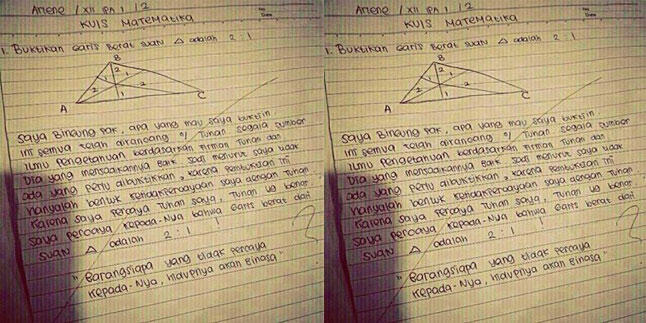 Arlene / XII IPA 1 / 2
KUIS MATEMATIKA
1. Buktikan garis berat suatu △ adalah 2 : 1
B
2 1
2 1 1 2
A C
Saya bingung pak, apa yang mau saya buktiin
ini semua telah dirancang o/ Tuhan segala sumber
ilmu pengetahuan berdasarkan Firman Tuhan dan
Dia yang menjadikannya baik. Jadi menurut saya tidak
ada yang perlu dibuktikkan, karena pembuktian ini
hanyalah bentuk ketidakpercayaan saya dengan Tuhan
Karena saya percaya Tuhan saya, Tuhan yg benar.
saya percaya kepada-Nya bahwa garis berat dari
suatu △ adalah 2 : 1
"Barangsiapa yang tidak percaya
kepada-Nya, hidupnya akan binasa"
Arlene / XII IPA 1 / 2
KUIS MATEMATIKA
1. Buktikan garis berat suatu △ adalah 2 : 1
B
2 1
2 1 1 2
A C
Saya bingung pak, apa yang mau saya buktiin
ini semua telah dirancang o/ Tuhan segala sumber
ilmu pengetahuan berdasarkan Firman Tuhan dan
Dia yang menjadikannya baik. Jadi menurut saya tidak
ada yang perlu dibuktikkan, karena pembuktian ini
hanyalah bentuk ketidakpercayaan saya dengan Tuhan
Karena saya percaya Tuhan saya, Tuhan yg benar.
saya percaya kepada-Nya bahwa garis berat dari
suatu △ adalah 2 : 1
"Barangsiapa yang tidak percaya
kepada-Nya, hidupnya akan binasa"